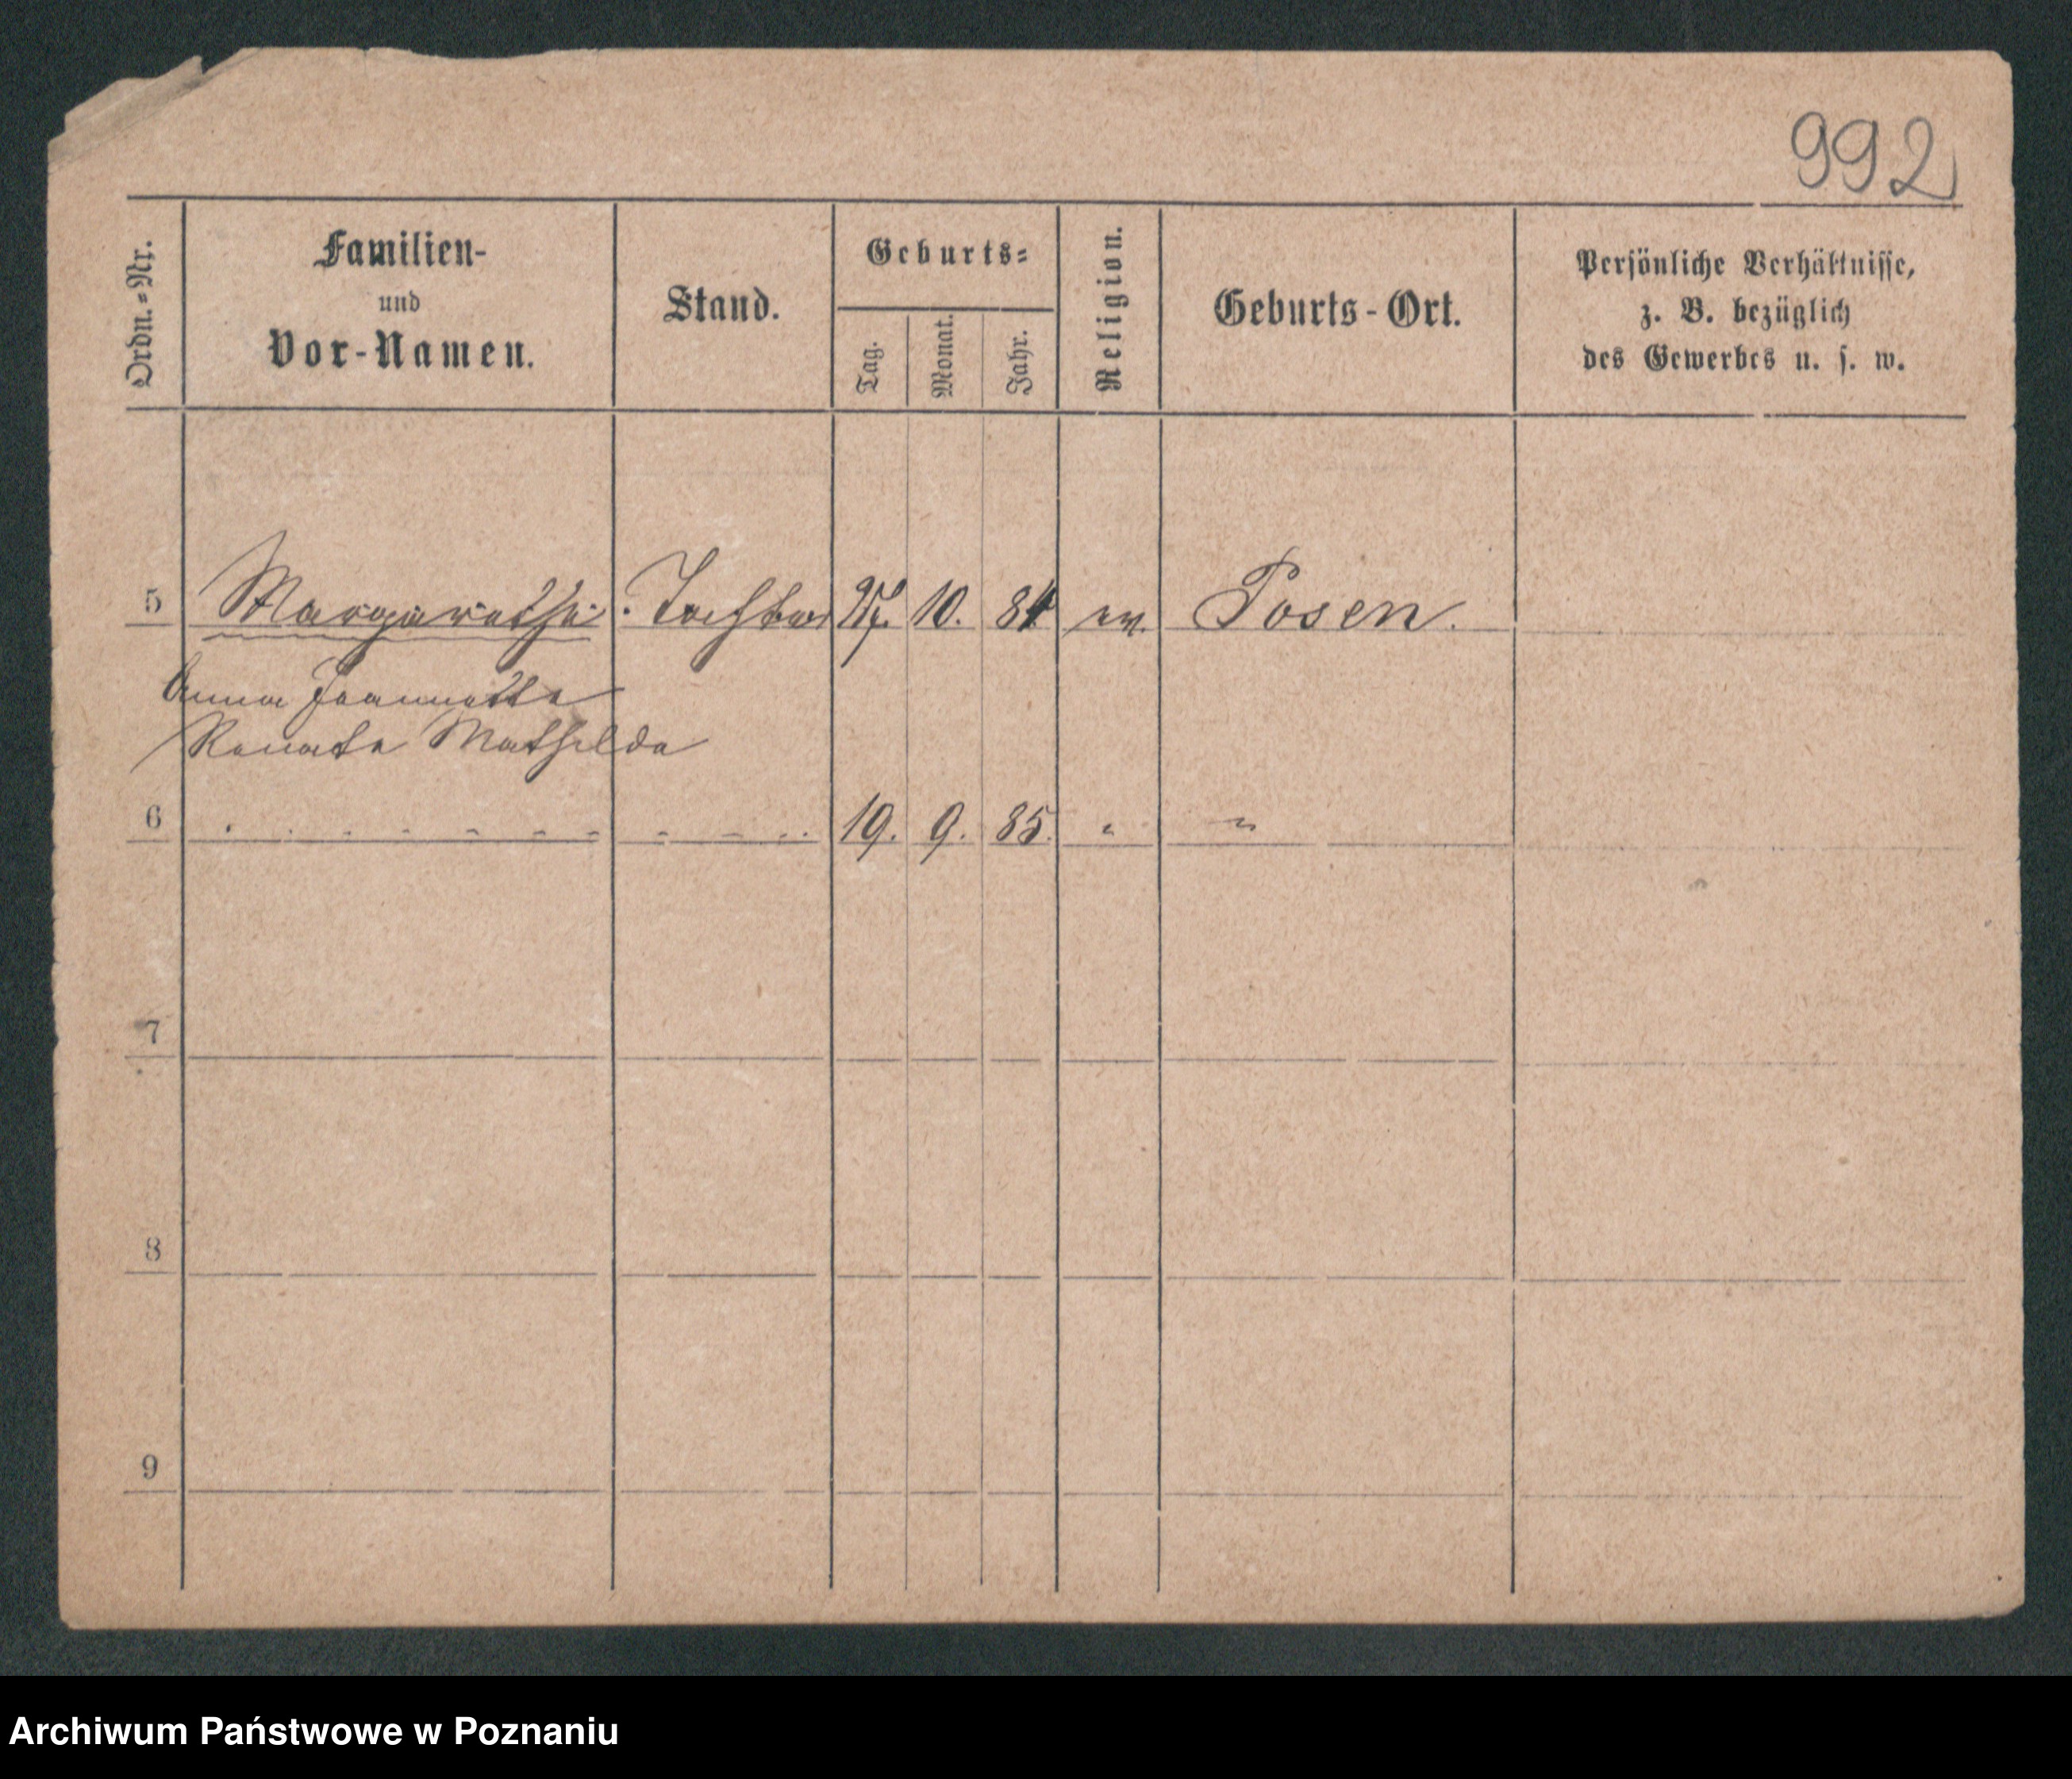 992
Ordn.-Nr.
Familien-
und
Vor-Namen.
Stand.
Geburts-
Tag.
Monat.
Jahr.
Religion.
Geburts-Ort.
Persönliche Verhältnisse,
z. B. bezüglich
des Gewerbes u. s. w.
5 Margarethe Tochter 10. 84 ev. Posen.
Anna Jeannette
Renate Mathilde
6 . . - - - - - - - . . 19. 9. 85. " "
7
8
9
Archiwum Państwowe w Poznaniu